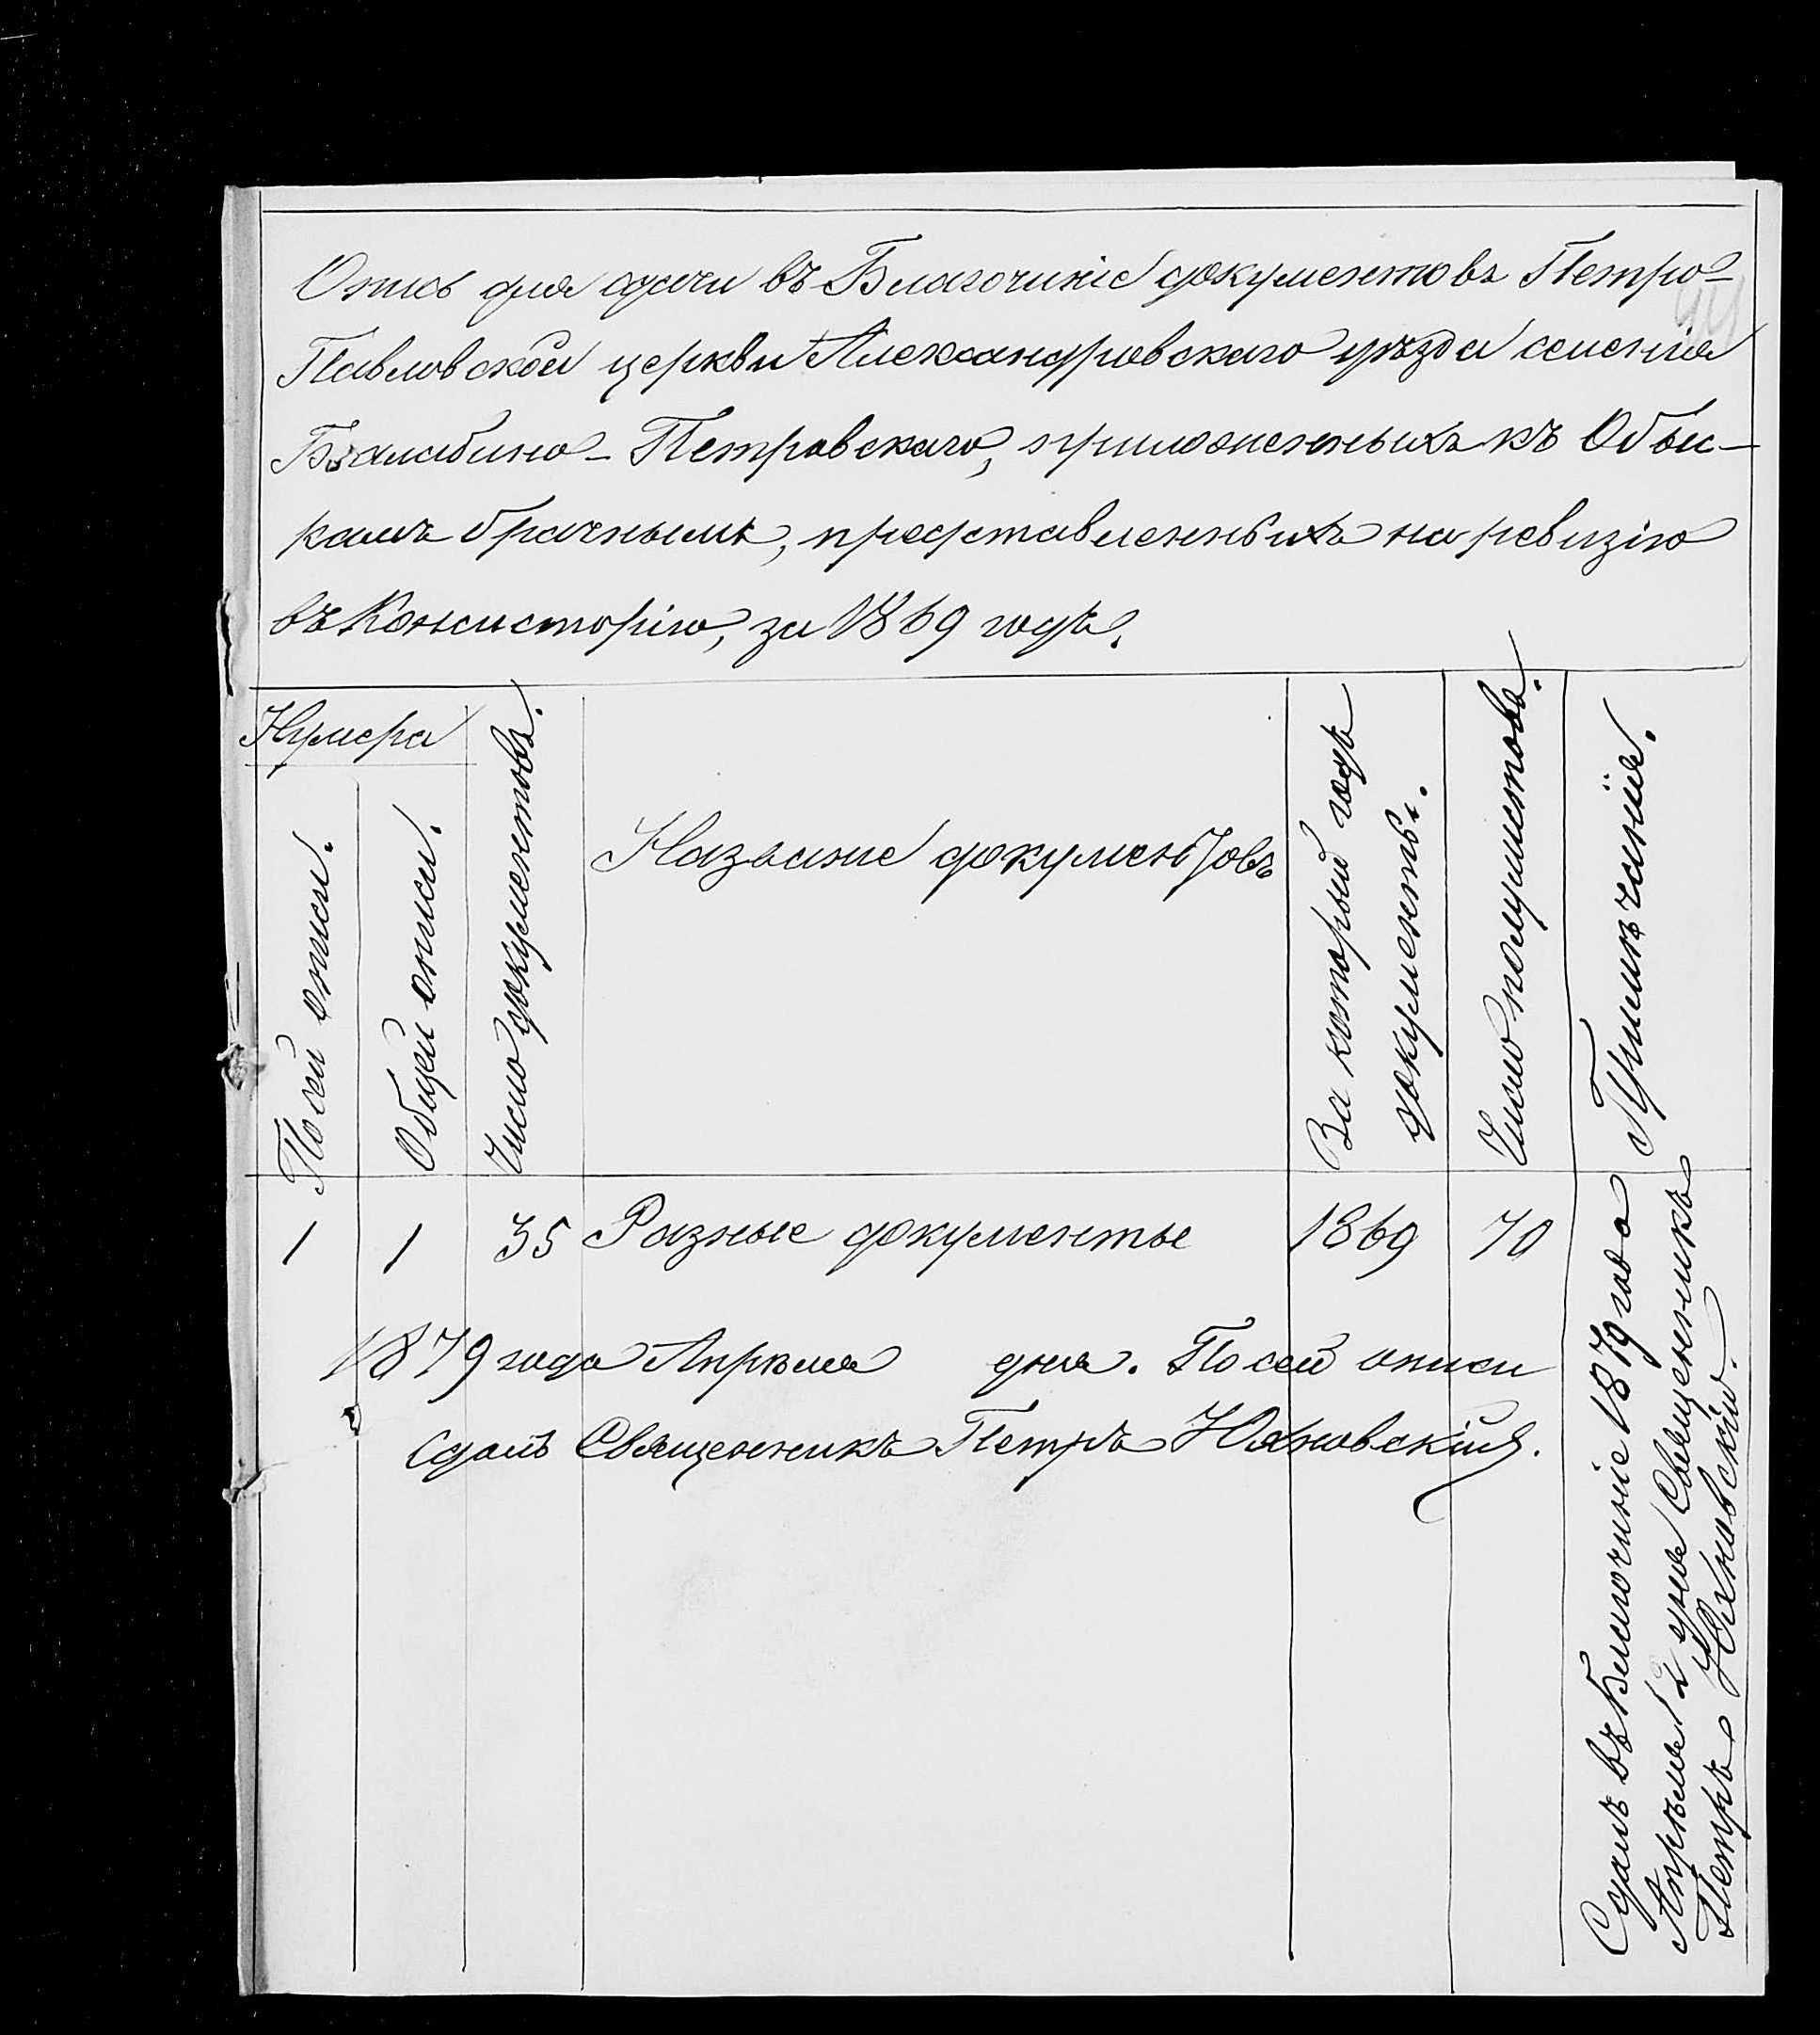 Опись для сдачи въ Благочиніе документовъ Петро-
Павловской церкви Александровскаго уѣзда селенія
Бѣлалибино-Петровскаго, приложенныхъ къ Обыс-
камъ брачнымъ, представленныхъ на ревизію
въ Консисторію, за 1869 годъ.
Нумера
По сей описи.
Общей описи.
Число документовъ.
Названіе документовъ
За который годъ
документы.
Число полулистовъ.
Примѣчаніе.
1 1 35 Разные документы 1869 70
1879 года Апрѣля дня. По сей описи
сдалъ Священникъ Петръ Юхновскій.
Сдалъ въ Благочиніе 1879 года
Апрѣля 2 дня Священникъ
Петръ Юхновскій.